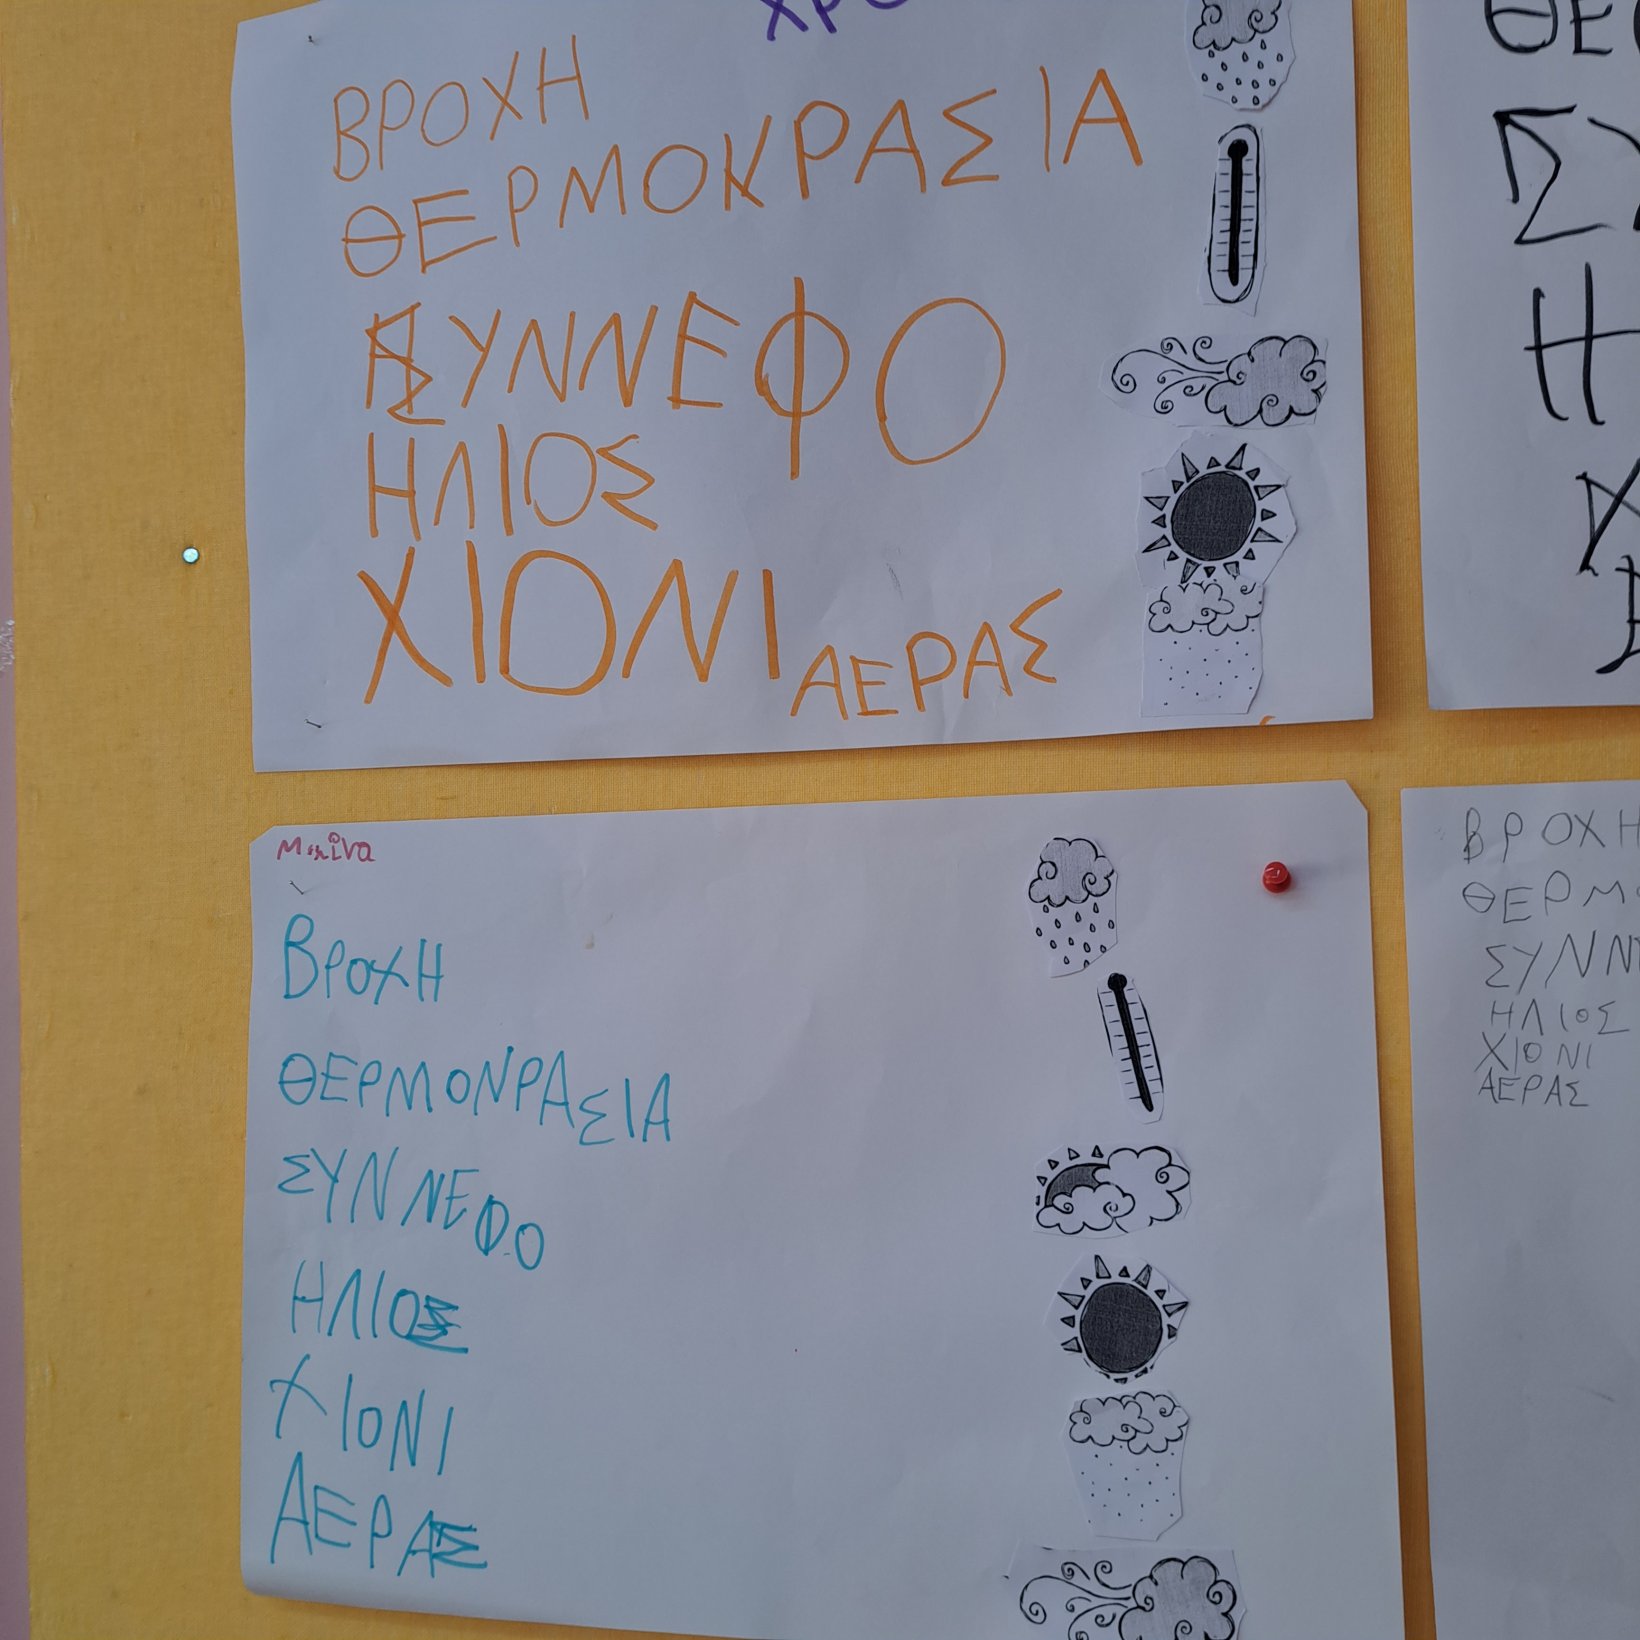 ΒΡΟΧΗ
ΘΕΡΜΟΚΡΑΣΙΑ
ΣΥΝΝΕΦΟ
ΗΛΙΟΣ
ΧΙΟΝΙ
ΑΕΡΑΣ
ΒΡΟΧΗ
ΘΕΡΜΟΝΡΑΣΙΑ
ΣΥΝΝΕΦΟ
ΗΛΙΟΣ
ΧΙΟΝΙ
ΑΕΡΑΣ
ΒΡΟΧΗ
ΘΕΡΜ
ΣΥΝΝ
ΗΛΙΟΣ
ΧΙΟΝΙ
ΑΕΡΑΣ